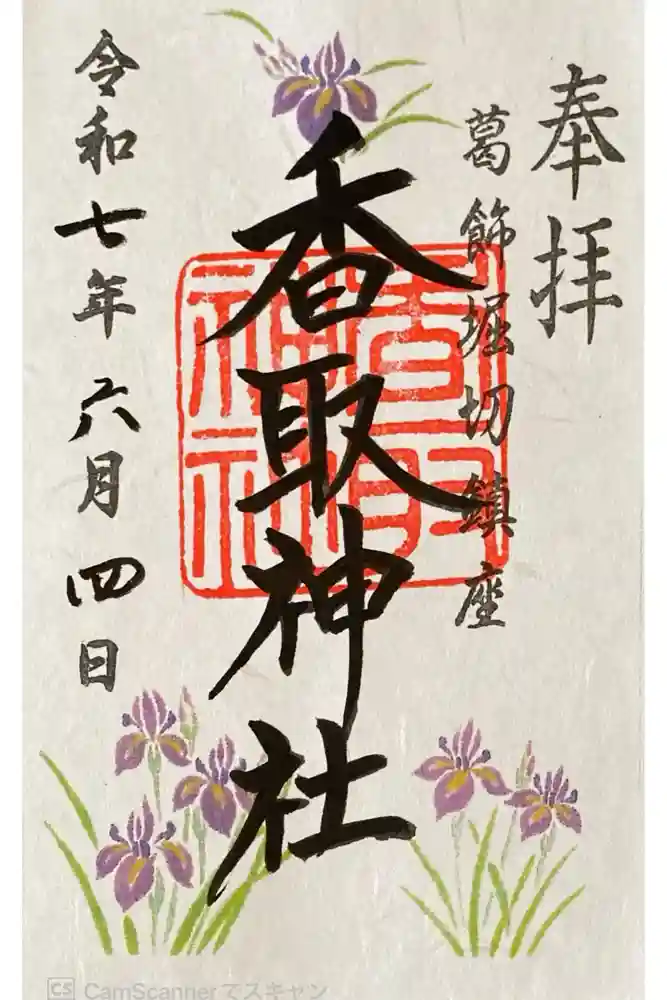 奉拝
葛飾堀切鎮座
香取神社
香取神社
令和七年六月四日
CS CamScannerでスキャン